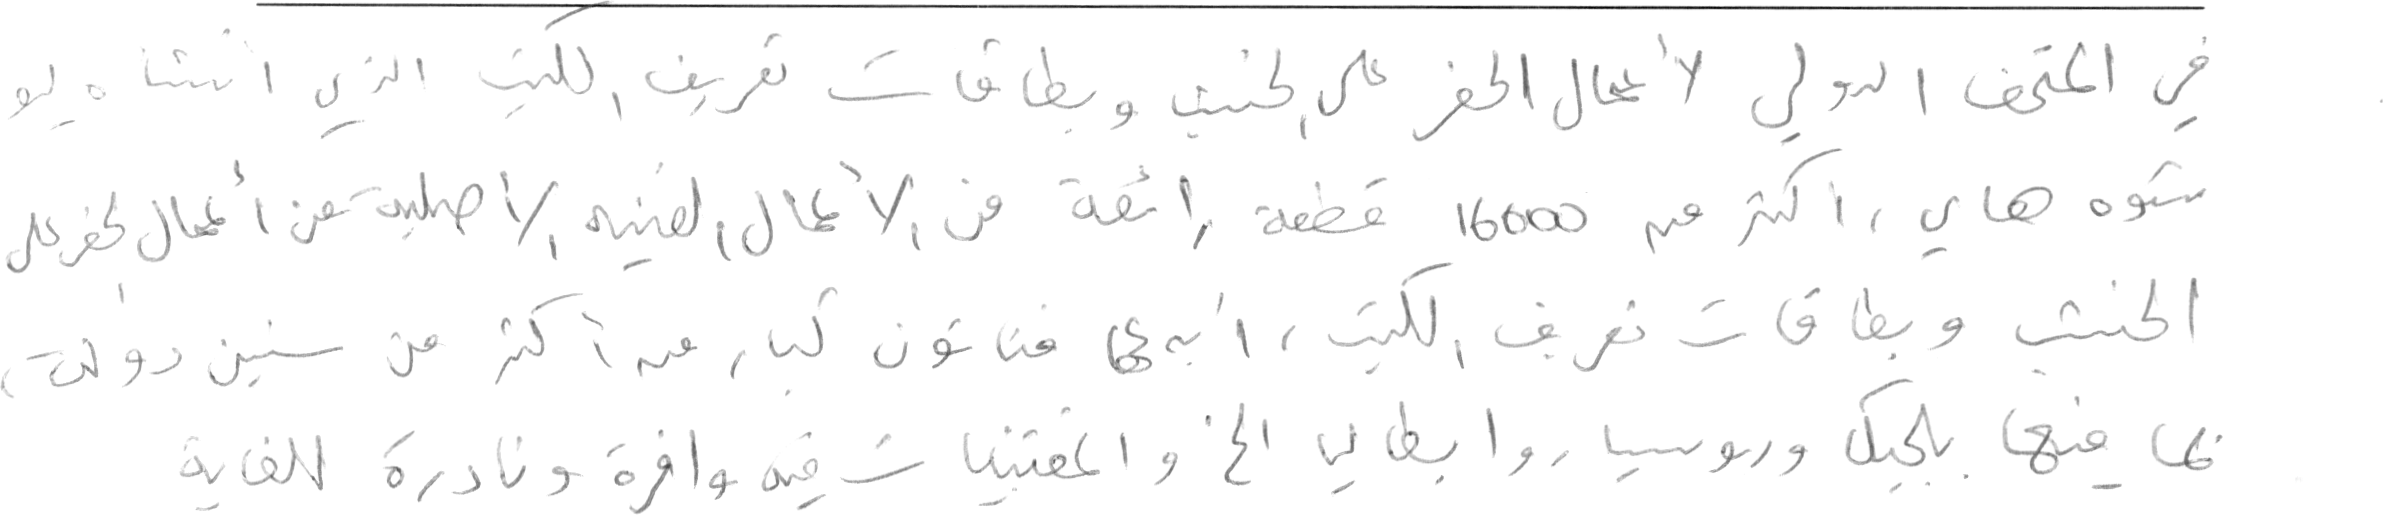 في المتحف الدولي لأعمال الحفر على الخشب وبطاقات تعريف الكتب الذي انشاه ليو
شوه هاي، اكثر من 16000 قطعة رائعة من الأعمال الفنيه الأصلية من أعمال الحفر على
الخشب وبطاقات تعريف الكتب، أبدعها فنانون كبار من أكثر من ستين دولة،
بما فيها بلجيكا وروسيا وايطاليا الخ. والمقتنيات فيه وافرة ونادرة للغاية